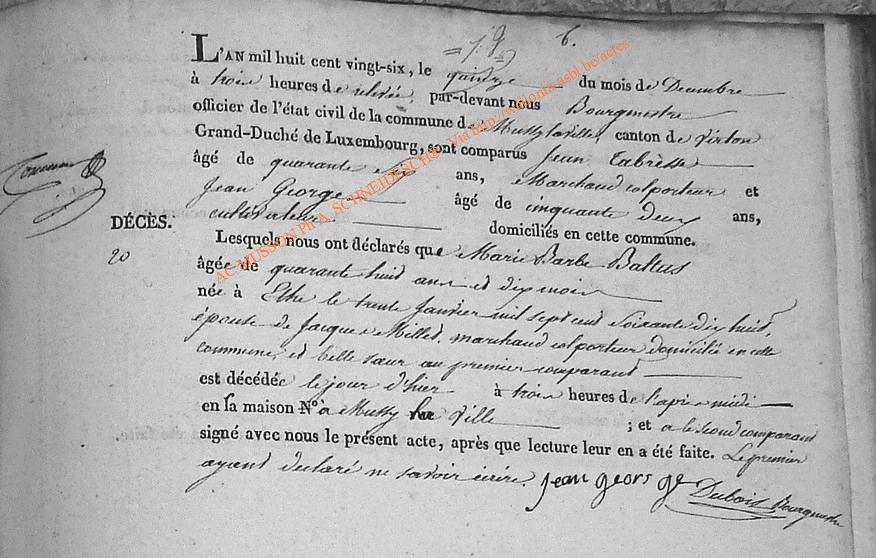 6.
L'AN mil huit cent vingt-six, le quinze du mois de Decembre
à trois heures de relevée, par-devant nous Bourgmestre
officier de l'état civil de la commune de Mussy la ville, canton de Virton
Grand-Duché de Luxembourg, sont comparus Jean Labresse
âgé de quarante six ans, Marchand colporteur et
Jean George âgé de cinquante deux ans,
cultivateur domiciliés en cette commune.
DÉCÈS.
20
Lesquels nous ont déclarés que Marie Barbe Baltus
âgée de quarante huit ans et dix mois
née à Ethe le trente Janvier mil sept cent soixante dix huit,
épouse de Jacque Millet, marchand colporteur domicilié en cette
commune, et belle sœur au premier comparant
est décédée le jour d'hier à trois heures de l'apres midi
en sa maison N° à Mussy la Ville ; et a le second comparant
signé avec nous le présent acte, après que lecture leur en a été faite. Le premier
ayant declaré ne savoir écrire. jean george Dubois Bourgmestre
AC MUSSON PIFA, SCHNEIDESCH@ Via http://wallonia.asbl.be/actes